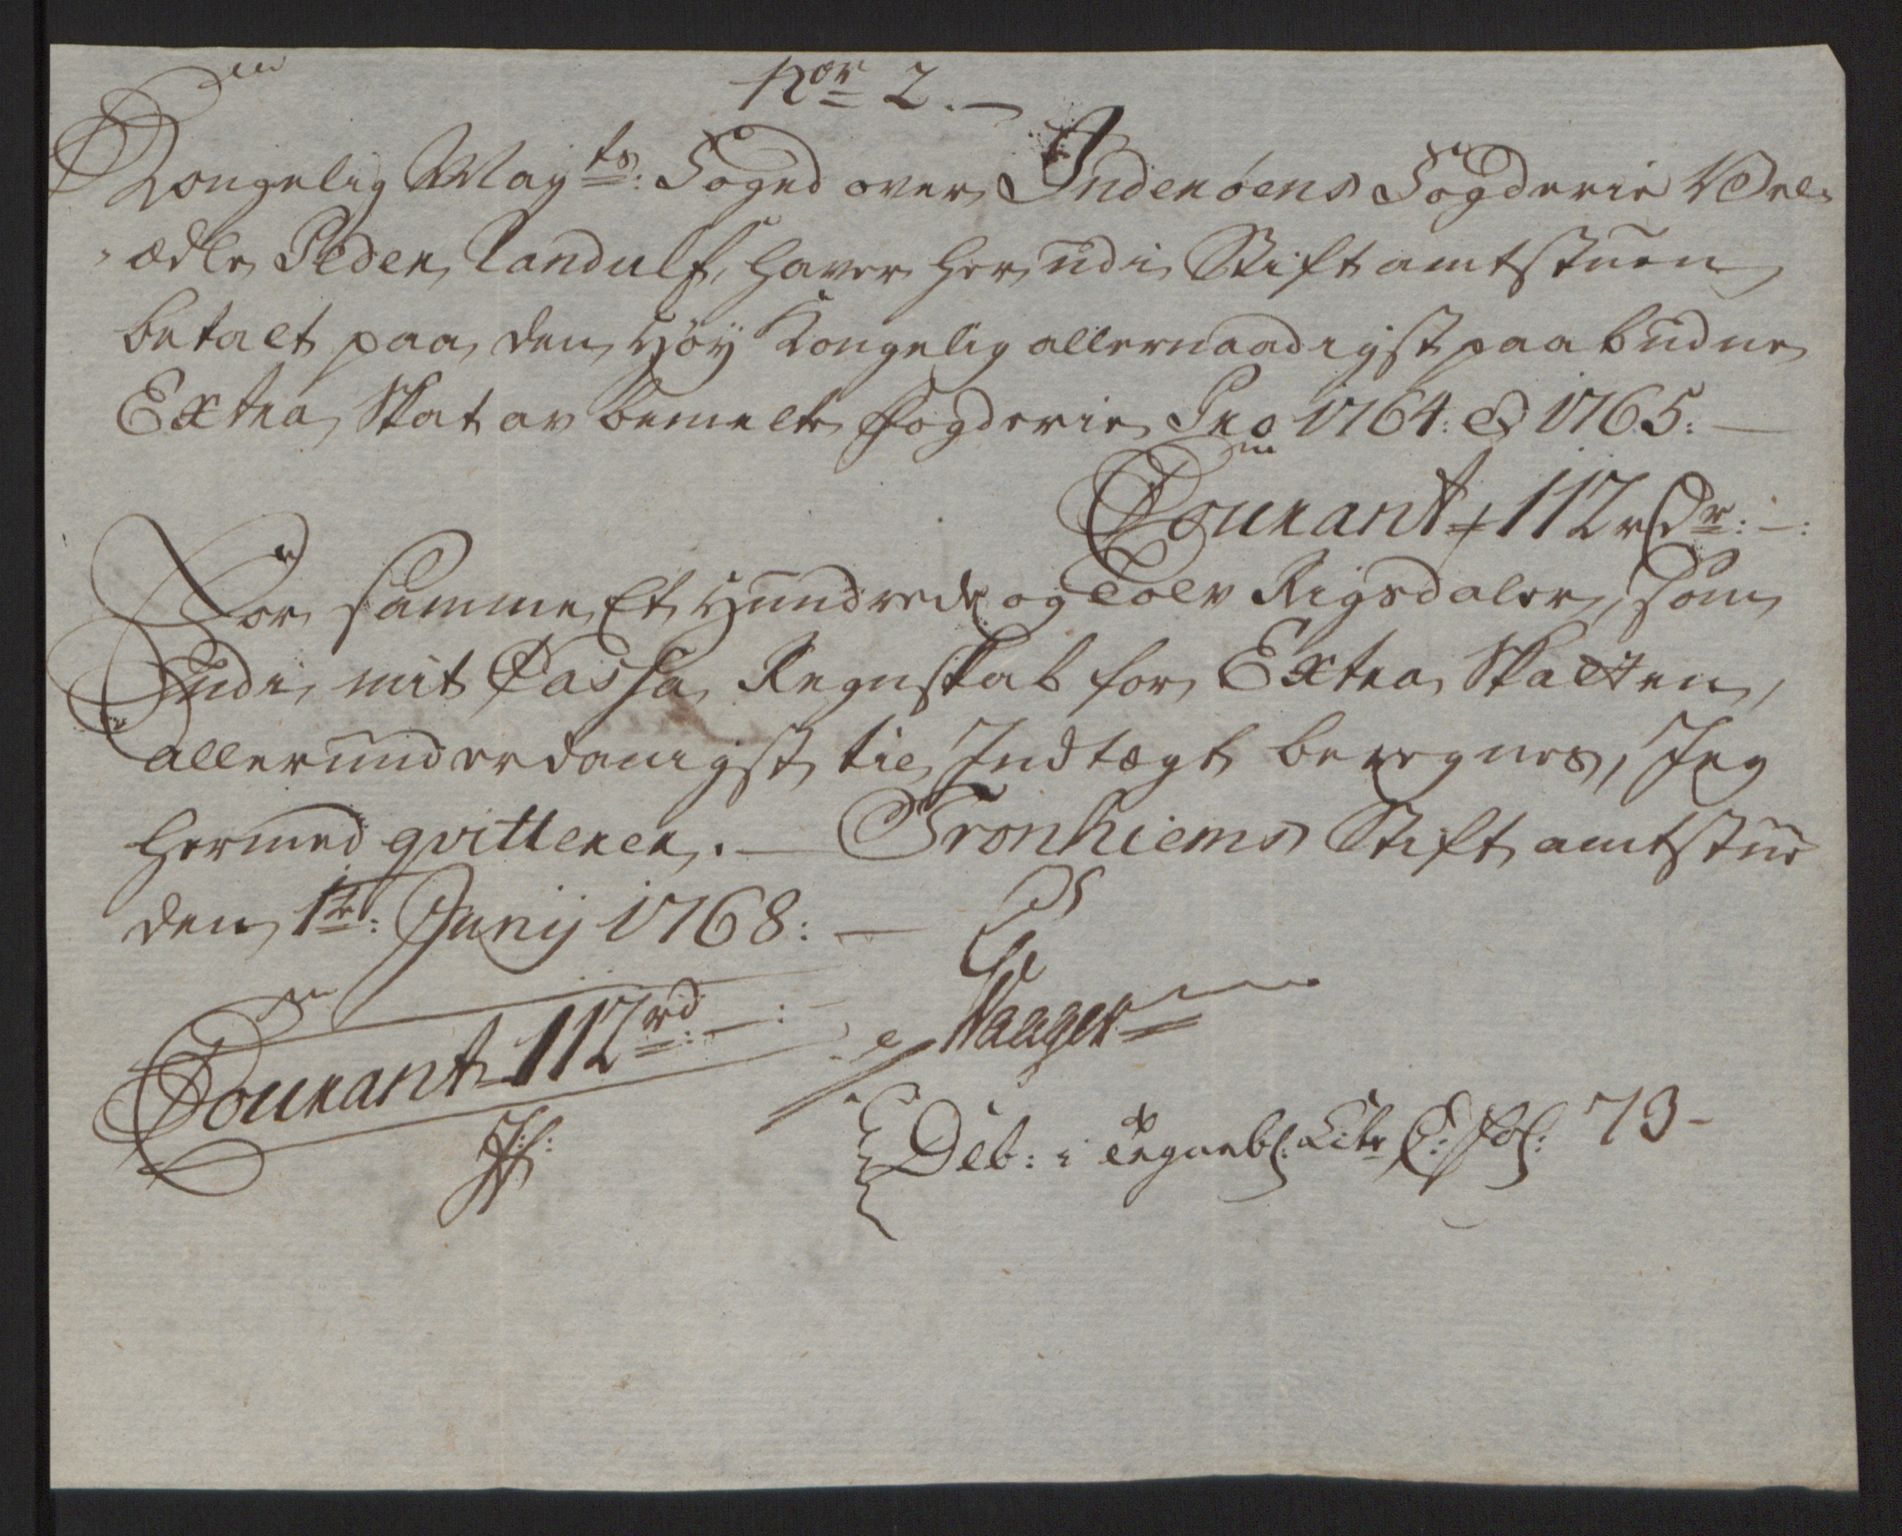 Nor 2.
Kongelig Mayts: Foged over Inderøens Fogderie Vel-
ædle Peder Landulf, haver her udi Stiftamtstuen
betalt paa den Høy Kongelig allernaadigst paabudne
Extra Skat av bemelte Fogderie Pro 1764: & 1765:
Courant 112 rdr:
For samme Et Hundrede og Tolv Rigsdaler, som
Udi mit Cassa Regnskab for Extra Skatten,
allerunderdanigst til Indtægt beregnes, Jeg
hermed qvitterer. Tronhiems Stiftamtstue
den 1te: Junij 1768:
Courant 112 rd:
Haagen
Deb: i Tegnebl: Litr E: Fol: 73